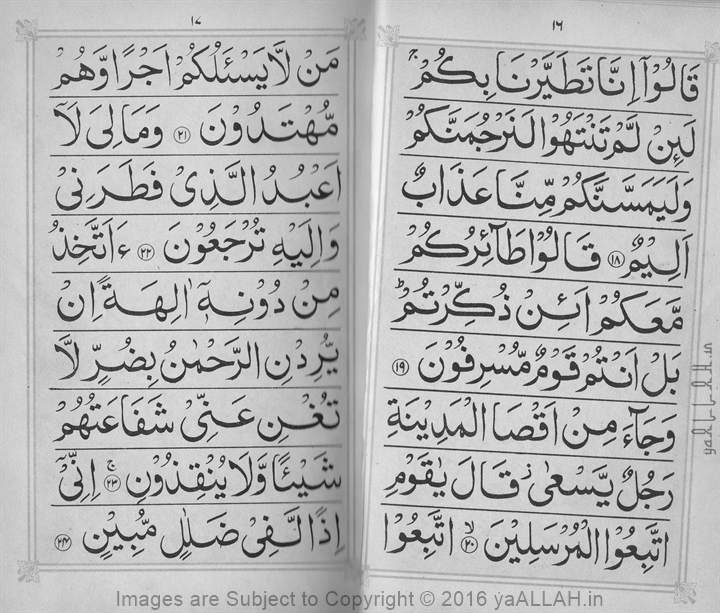 ١٦
قَالُوْۤا اِنَّا تَطَيَّرْنَا بِكُمْ ۚ
لَئِنْ لَّمْ تَنْتَهُوْا لَنَرْجُمَنَّكُمْ
وَلَيَمَسَّنَّكُمْ مِّنَّا عَذَابٌ
اَلِيْمٌ ﴿١٨﴾ قَالُوْا طَآئِرُكُمْ
مَّعَكُمْ اَئِنْ ذُكِّرْتُمْ ؕ
بَلْ اَنْتُمْ قَوْمٌ مُّسْرِفُوْنَ ﴿١٩﴾
وَجَآءَ مِنْ اَقْصَا الْمَدِيْنَةِ
رَجُلٌ يَّسْعٰى ۫ قَالَ يٰقَوْمِ
اتَّبِعُوا الْمُرْسَلِيْنَ ﴿٢٠﴾ۙ اتَّبِعُوْا
١٧
مَنْ لَّا يَسْـَٔلُكُمْ اَجْرًا وَّهُمْ
مُّهْتَدُوْنَ ﴿٢١﴾ وَمَا لِىَ لَاۤ
اَعْبُدُ الَّذِىْ فَطَرَنِىْ
وَاِلَيْهِ تُرْجَعُوْنَ ﴿٢٢﴾ ءَاَتَّخِذُ
مِنْ دُوْنِهٖۤ اٰلِهَةً اِنْ
يُّرِدْنِ الرَّحْمٰنُ بِضُرٍّ لَّا
تُغْنِ عَنِّىْ شَفَاعَتُهُمْ
شَيْـًٔا وَّلَا يُنْقِذُوْنِ ﴿٢٣﴾ۚ اِنِّىْۤ
اِذًا لَّفِىْ ضَلٰلٍ مُّبِيْنٍ ﴿٢٤﴾
yaALLAH.in
Images are Subject to Copyright © 2016 yaALLAH.in